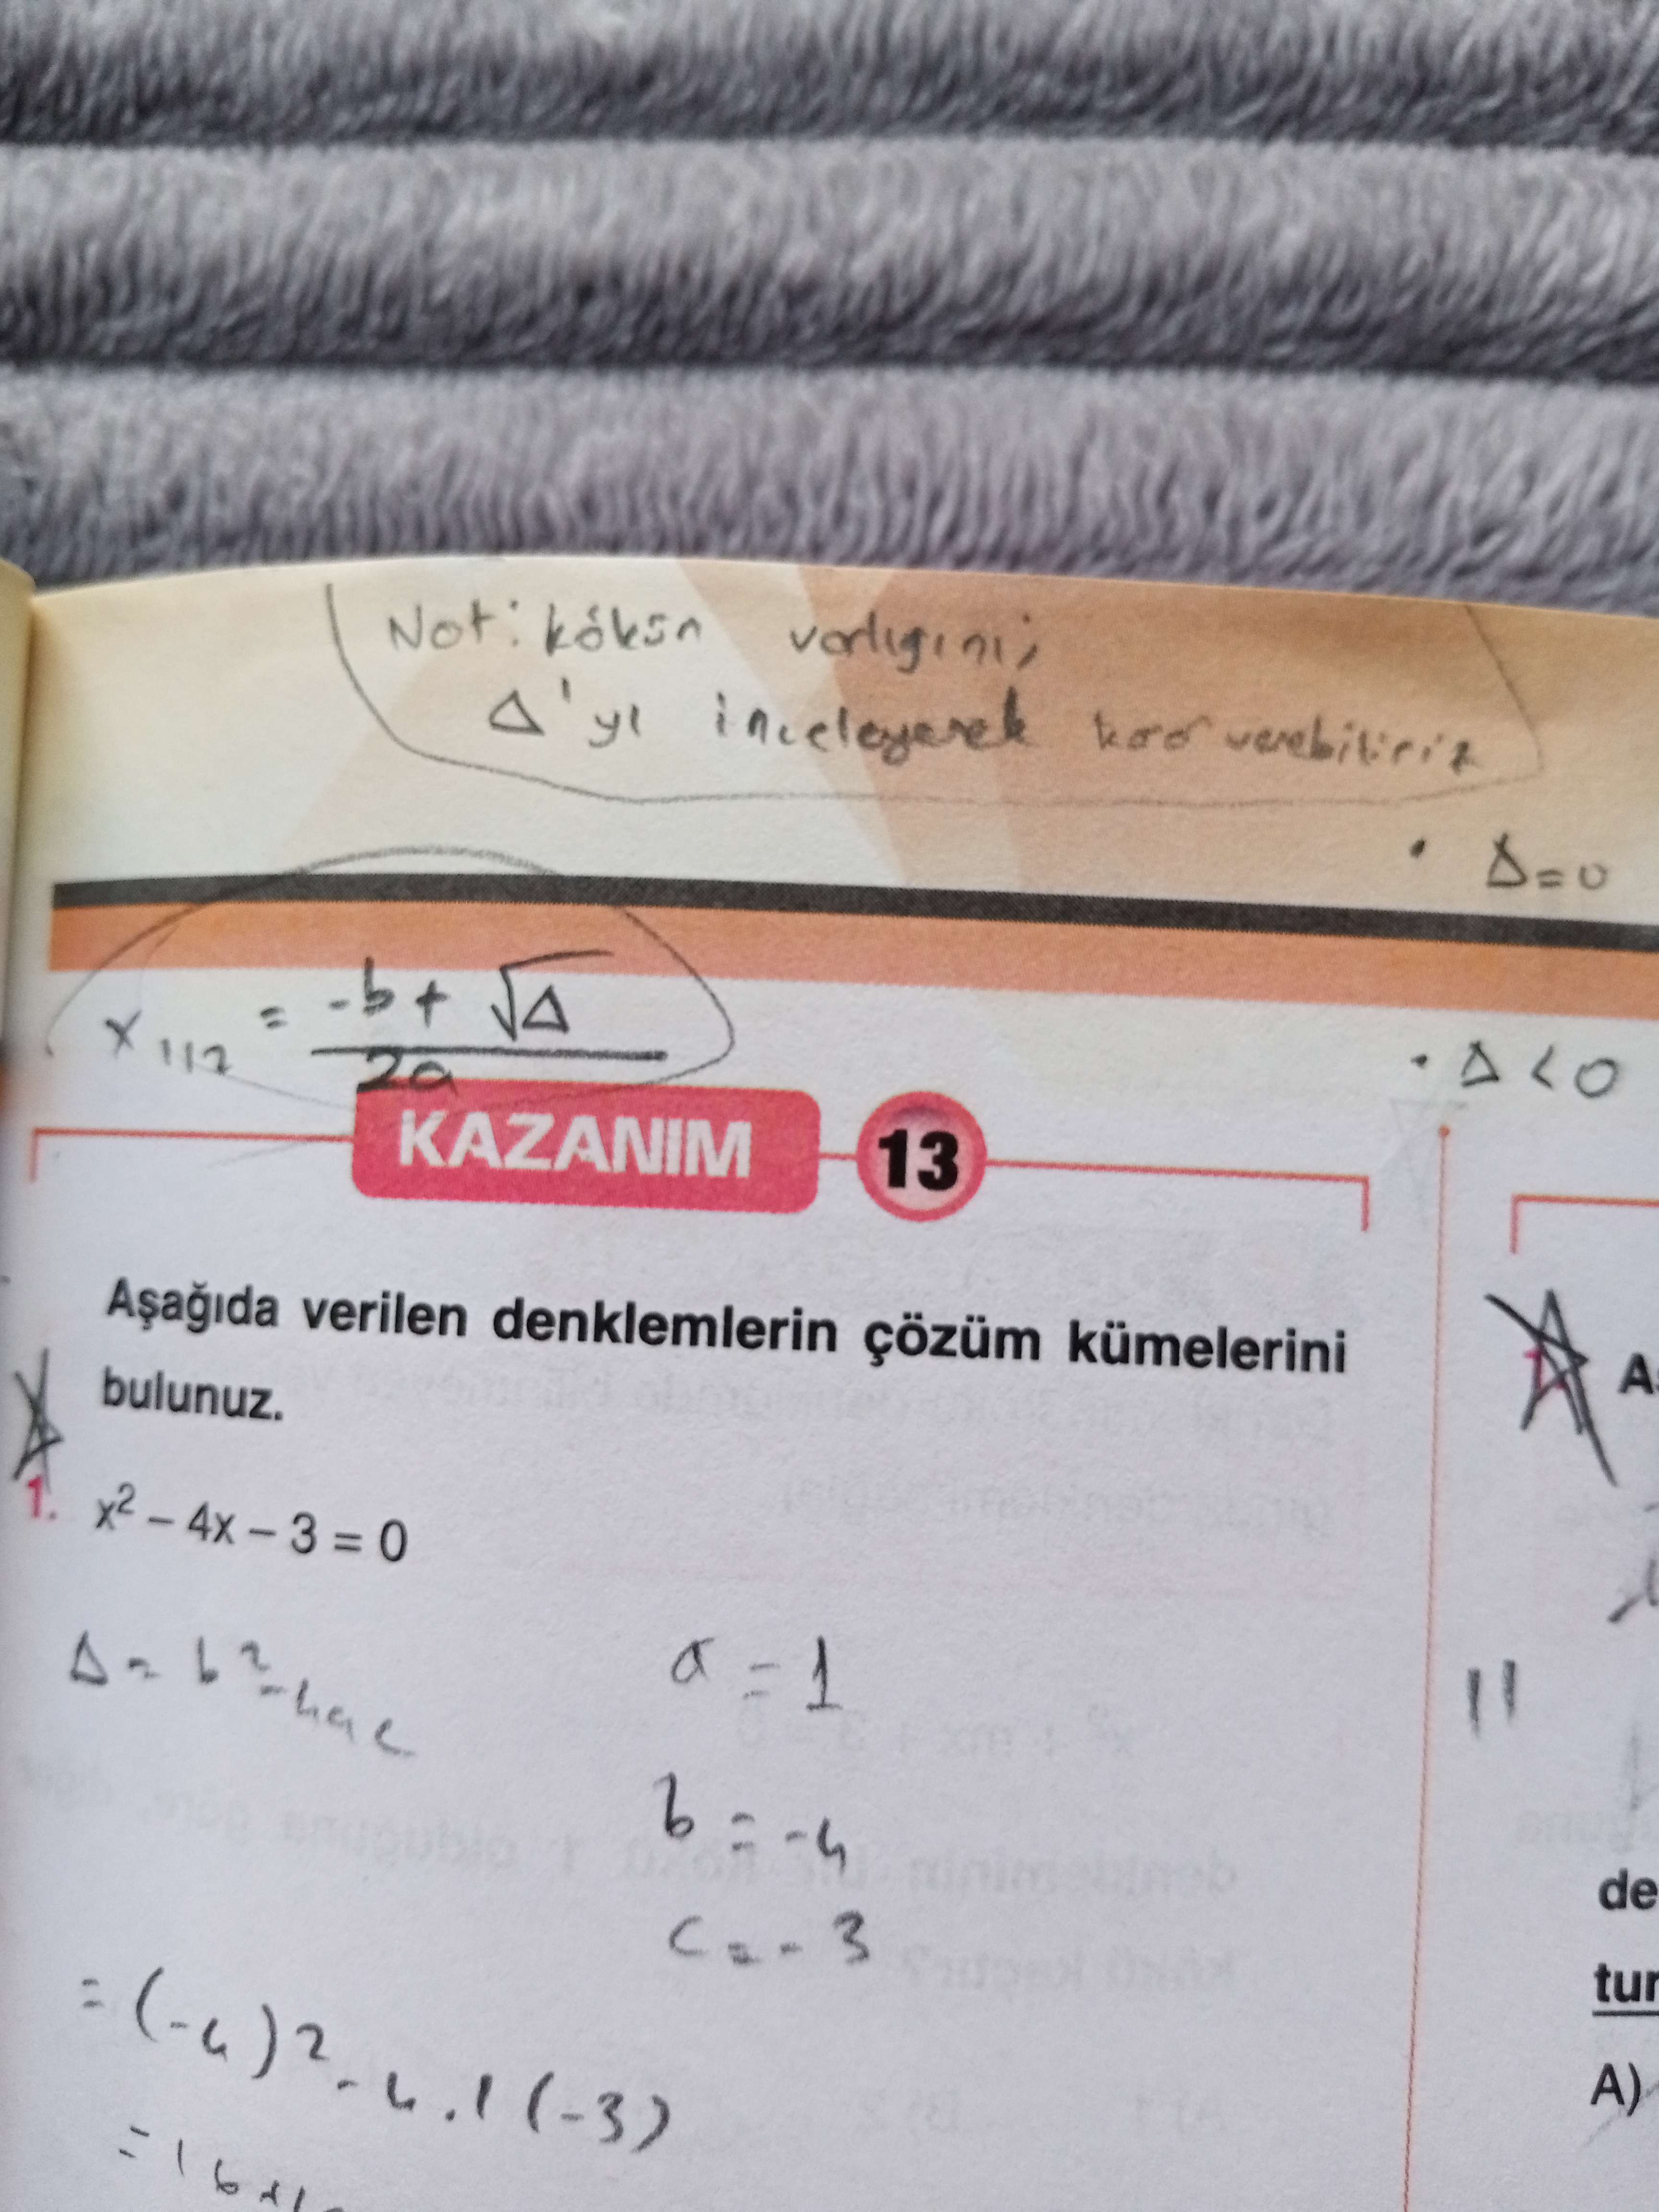 Not: kökün varlığını;
Δ'yı inceleyerek karar verebiliriz
• Δ=0
x₁,₂ = -b+√Δ
2a
• Δ<0
KAZANIM 13
Aşağıda verilen denklemlerin çözüm kümelerini
bulunuz.
1. x² – 4x – 3 = 0
Δ = b²-4ac
a = 1
b = -4
c = -3
= (-4)² - 4.1(-3)
= 16+1
de
tur
A)